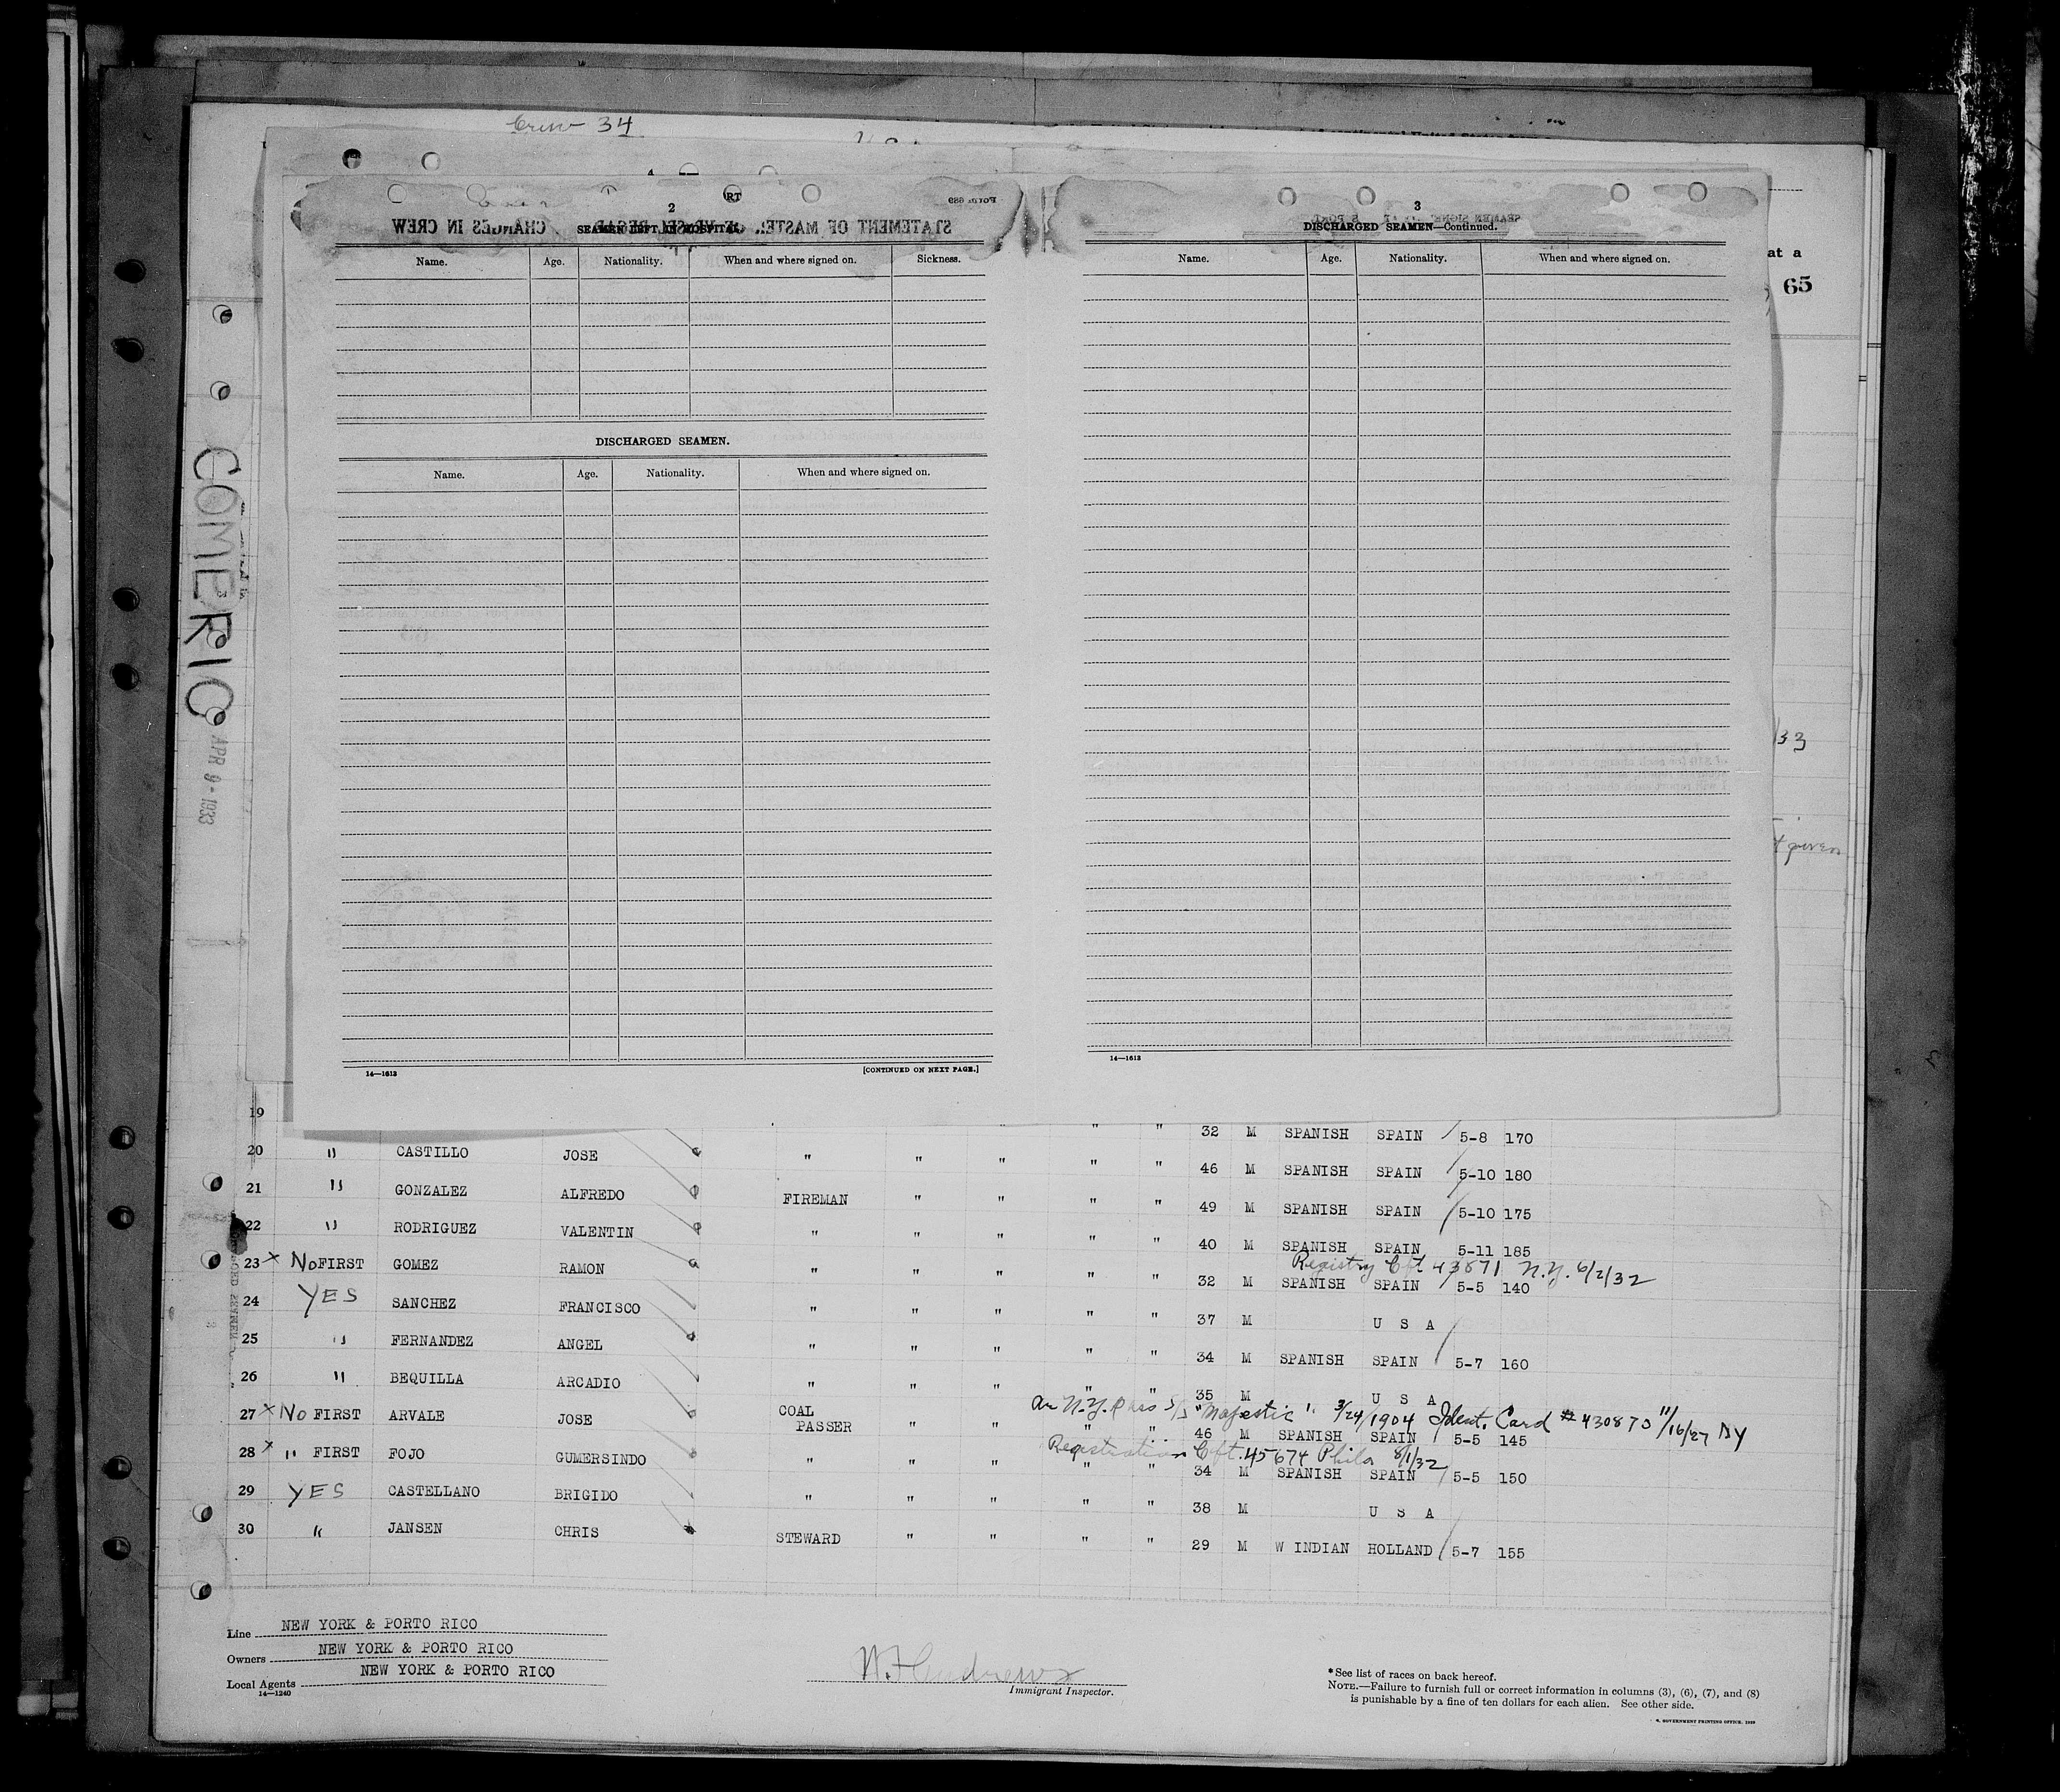 Crew 34
at a
65
2
SEAMEN LEFT IN HOSPITAL.
STATEMENT OF MASTER
CHANGES IN CREW
Form 689
Name. Age. Nationality. When and where signed on. Sickness.
DISCHARGED SEAMEN.
Name. Age. Nationality. When and where signed on.
14—1613 [CONTINUED ON NEXT PAGE.]
3
DISCHARGED SEAMEN—Continued.
Name. Age. Nationality. When and where signed on.
14—1613
COMERIO
APR 9 - 1933
/33
given
19 " " 32 M SPANISH SPAIN 5-8 170
20 " CASTILLO JOSE " " " " " 46 M SPANISH SPAIN 5-10 180
21 " GONZALEZ ALFREDO FIREMAN " " " " 49 M SPANISH SPAIN 5-10 175
22 " RODRIGUEZ VALENTIN " " " " " 40 M SPANISH SPAIN 5-11 185
Registry Cft. 43871 N.Y. 6/2/32
23 x No FIRST GOMEZ RAMON " " " " " 32 M SPANISH SPAIN 5-5 140
24 YES SANCHEZ FRANCISCO " " " " " 37 M U S A
25 " FERNANDEZ ANGEL " " " " " 34 M SPANISH SPAIN 5-7 160
26 " BEQUILLA ARCADIO " " " " " 35 M U S A
Arr N.Y. Pass S/S "Majestic" 3/24/1904 Ident. Card # 430873 11/16/27 NY
27 x No FIRST ARVALE JOSE COAL PASSER " " " " 46 M SPANISH SPAIN 5-5 145
Registration Cft. 45674 Phila 8/1/32
28 x " FIRST FOJO GUMERSINDO " " " " " 34 M SPANISH SPAIN 5-5 150
29 YES CASTELLANO BRIGIDO " " " " " 38 M U S A
30 " JANSEN CHRIS STEWARD " " " " 29 M W INDIAN HOLLAND 5-7 155
Line NEW YORK & PORTO RICO
Owners NEW YORK & PORTO RICO
Local Agents NEW YORK & PORTO RICO
14—1240
Immigrant Inspector.
*See list of races on back hereof.
NOTE.—Failure to furnish full or correct information in columns (3), (6), (7), and (8)
is punishable by a fine of ten dollars for each alien. See other side.
GOVERNMENT PRINTING OFFICE